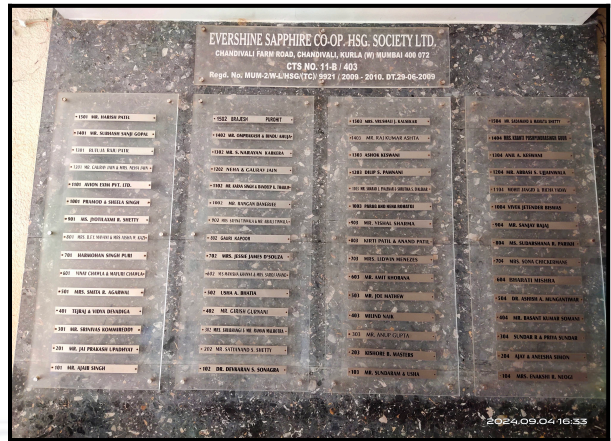 EVERSHINE SAPPHIRE CO-OP. HSG. SOCIETY LTD.
CHANDIVALI FARM ROAD, CHANDIVALI, KURLA (W) MUMBAI 400 072
CTS NO. 11-B / 403
Regd. No. MUM-2/W-L/HSG/(TC)/ 9921 / 2009 - 2010. DT.29-06-2009
1501 MR. HARISH PATEL
1401 MR. SUBHASH SANJI GOPAL
1301
1201
1101 AVION EXIM PVT. LTD.
1001 PRAMOD & SHEELA SINGH
901 MS. JYOTILAXMI R. SHETTY
801
701 HARMOHAN SINGH PURI
601 VINAY CHAWLA & MADURI CHAWLA
501 MRS. SMITA R. AGARWAL
401 TEJRAJ & VIDYA DEVADIGA
301 MR. SRINIVAS KOMMIREDDY
201 MR. JAI PRAKASH UPADHYAY
101 MR. AJAIB SINGH
1502 BRAJESH PUROHIT
1402 MR. OMPRAKASH & BINDU AHUJA
1302 MR. S. NARAYAN KARKERA
1202 NEHA & GAURAV JAIN
1102
1002 MR. RANGAN BANERJEE
902
802 GAURI KAPOOR
702 MRS. JESSIE JAMES D'SOUZA
602
502 USHA A. BHATIA
402 MR. GIRISH GURNANI
302
202 MR. SATCHANAND S. SHETTY
102 DR. DEVKARAN S. SONAGRA
1503
1403 MR. RAJ KUMAR ASHTA
1303 ASHOK KESWANI
1203 DILIP S. PAWNANI
1103
1003
903 MR. VISHAL SHARMA
803 KIRTI PATIL & ANAND PATIL
703 MRS. LUDWIN MENEZES
603 MR. AMIT KHORANA
503 MR. JOE MATHEW
403 MILIND NAIK
303 MR. ANUP GUPTA
203 KISHORE B. MASTERS
103 MR. SUNDARAM & USHA
1504
1404
1304 ANIL A. KESWANI
1204 MR. ABBASI S. UJJAINWALA
1104 ROHIT JANGID & RICHI YADAV
1004 VIVEK JETENDER BISWAS
904 MR. SANJAY BAJAJ
804 MR. SUDARSHANA R. PARIDH
704 MRS. SONA CHICKERMANE
604 BISHARATI MISHRA
504 DR. ASHIMA A. MUNGANTIWAR
404 MR. BASANT KUMAR SOMANI
304 SUNDAR R & PRIYA SUNDAR
204 AJAY & ANEESHA SIMON
104 MRS. ENAKSHI R. NEOGI
2024.09.04 16:33